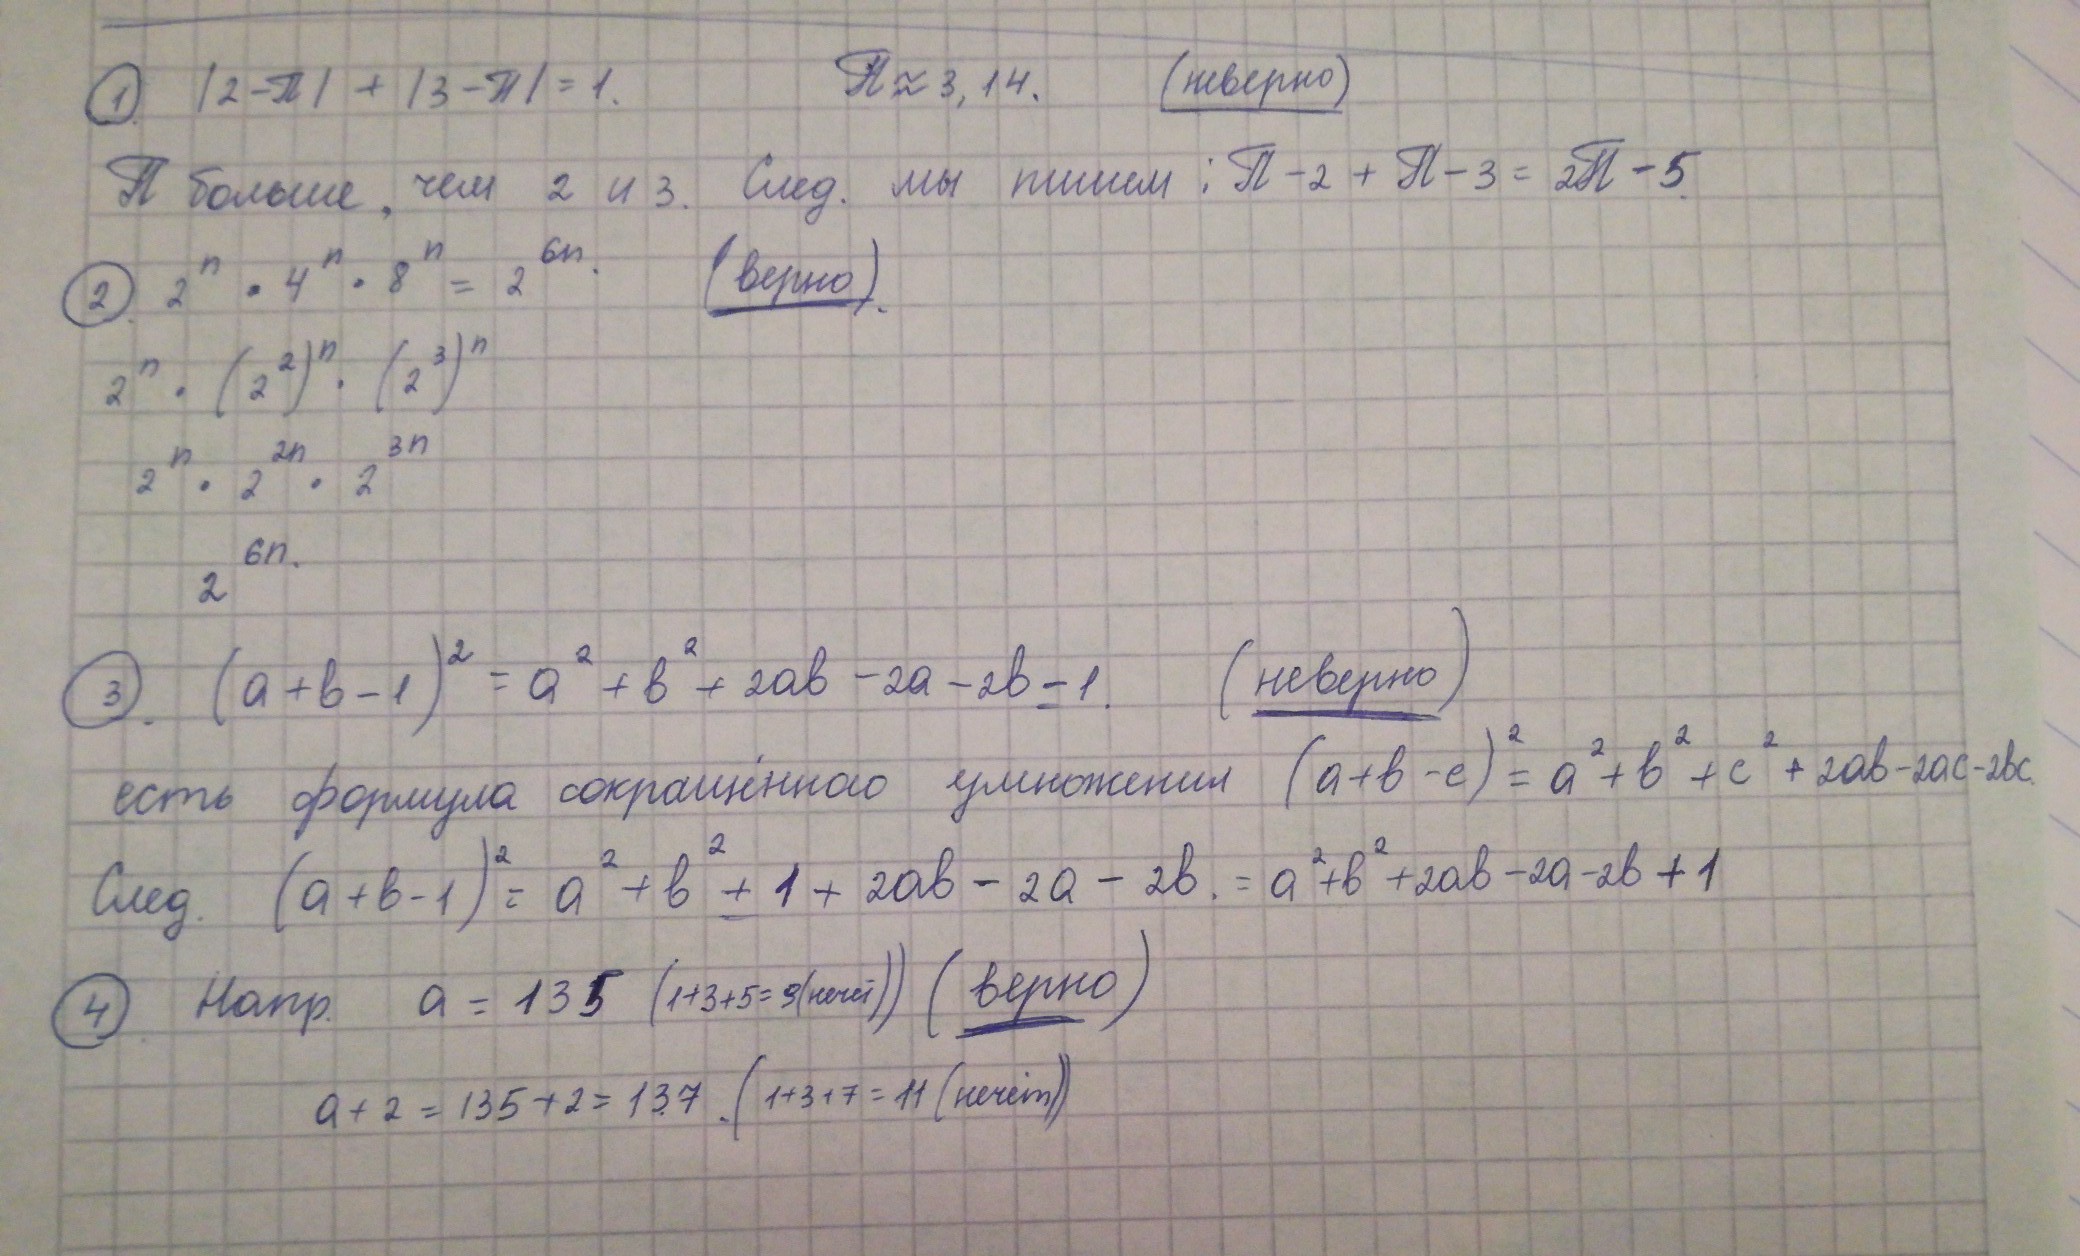 1 |2-π| + |3-π| = 1. π ≈ 3,14. (неверно)
π больше, чем 2 и 3. След. мы пишем: π-2 + π-3 = 2π-5.
2. 2ⁿ · 4ⁿ · 8ⁿ = 2⁶ⁿ. (верно).
2ⁿ · (2²)ⁿ · (2³)ⁿ
2ⁿ · 2²ⁿ · 2³ⁿ
2⁶ⁿ.
3. (a+b-1)² = a² + b² + 2ab - 2a - 2b - 1. (неверно)
есть формула сокращённого умножения (a+b-c)² = a² + b² + c² + 2ab-2ac-2bc.
След. (a+b-1)² = a² + b² + 1 + 2ab - 2a - 2b. = a²+b²+2ab-2a-2b+1
4 Напр. a = 135 (1+3+5=9(нечёт)) (верно)
a+2 = 135+2 = 137. (1+3+7=11 (нечёт))